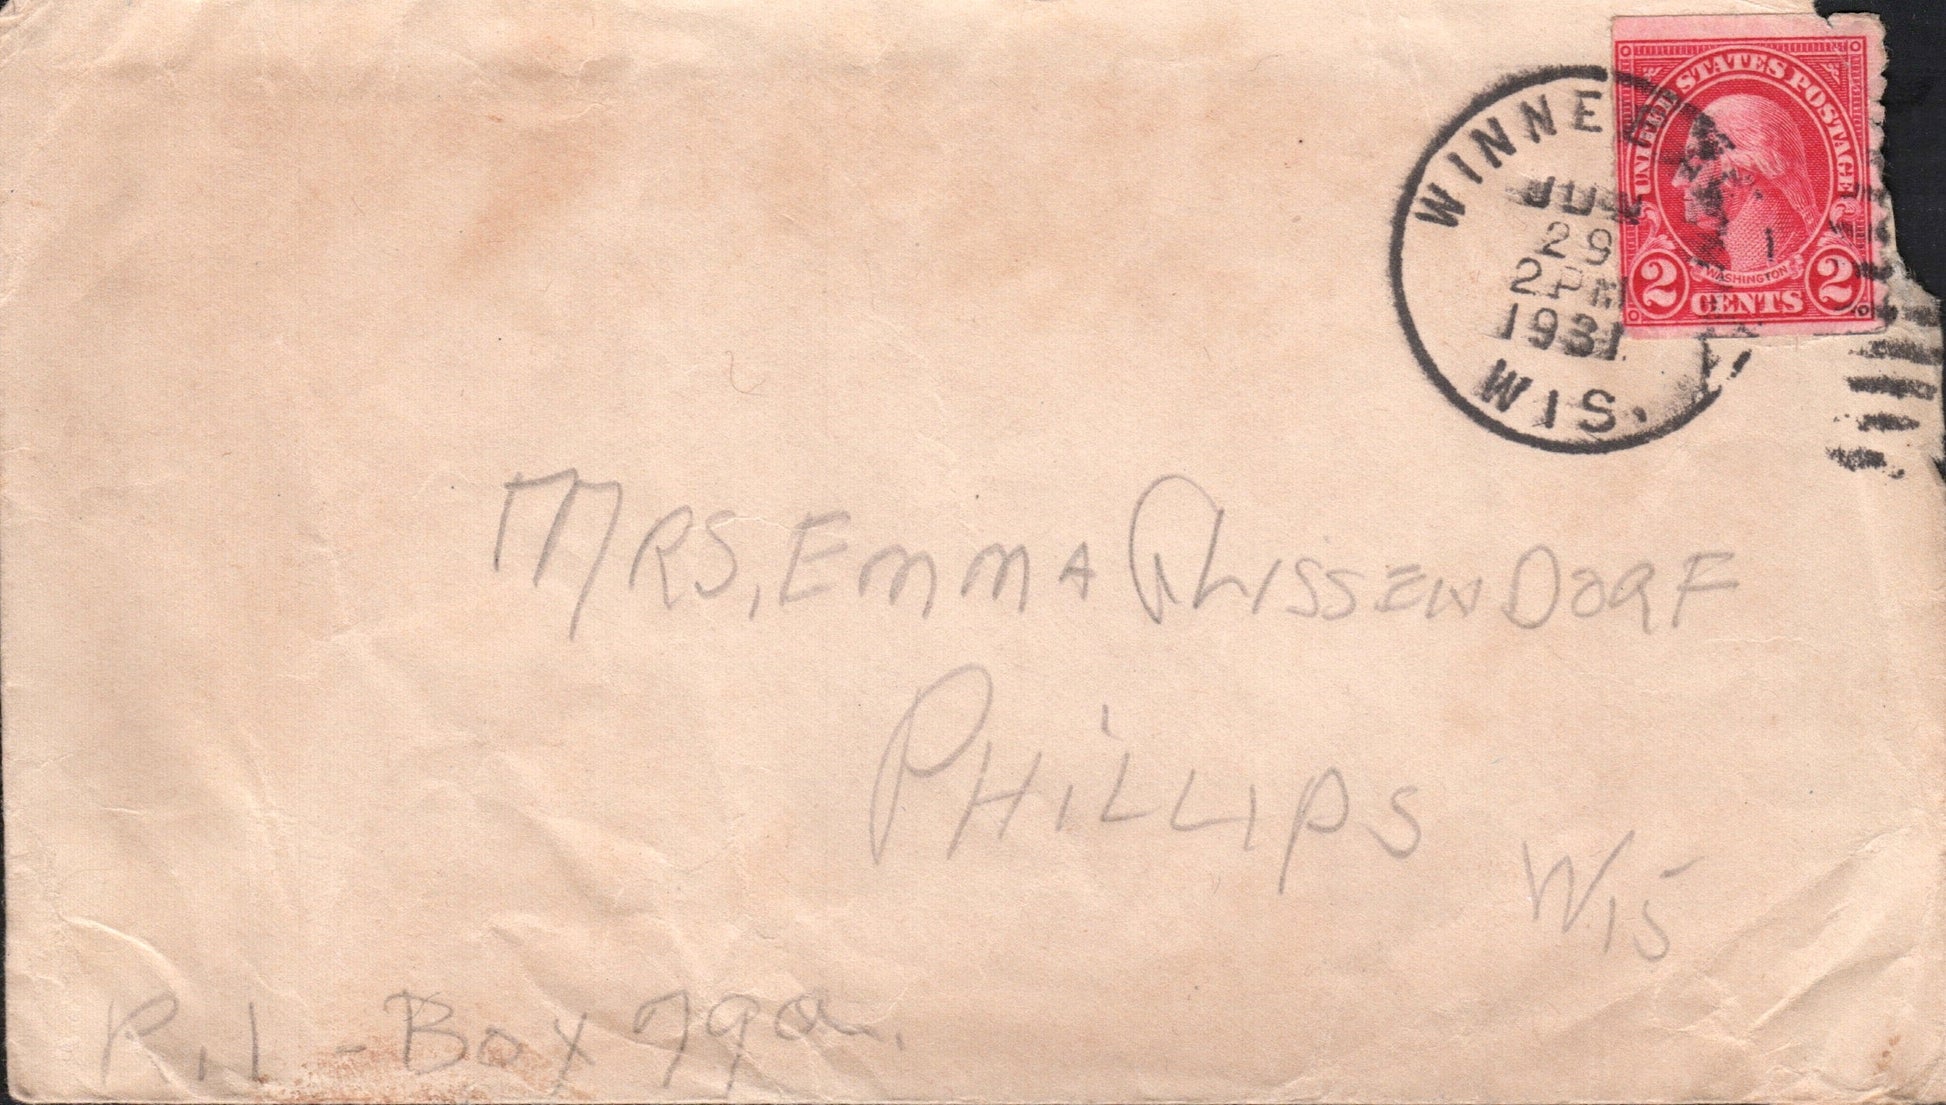 UNITED STATES POSTAGE
WASHINGTON
2 CENTS 2
WINNE
29
2 PM
1931
WIS.
MRS, EMMA
PHILLIPS
WIS
R, 1 - BOX 79a.